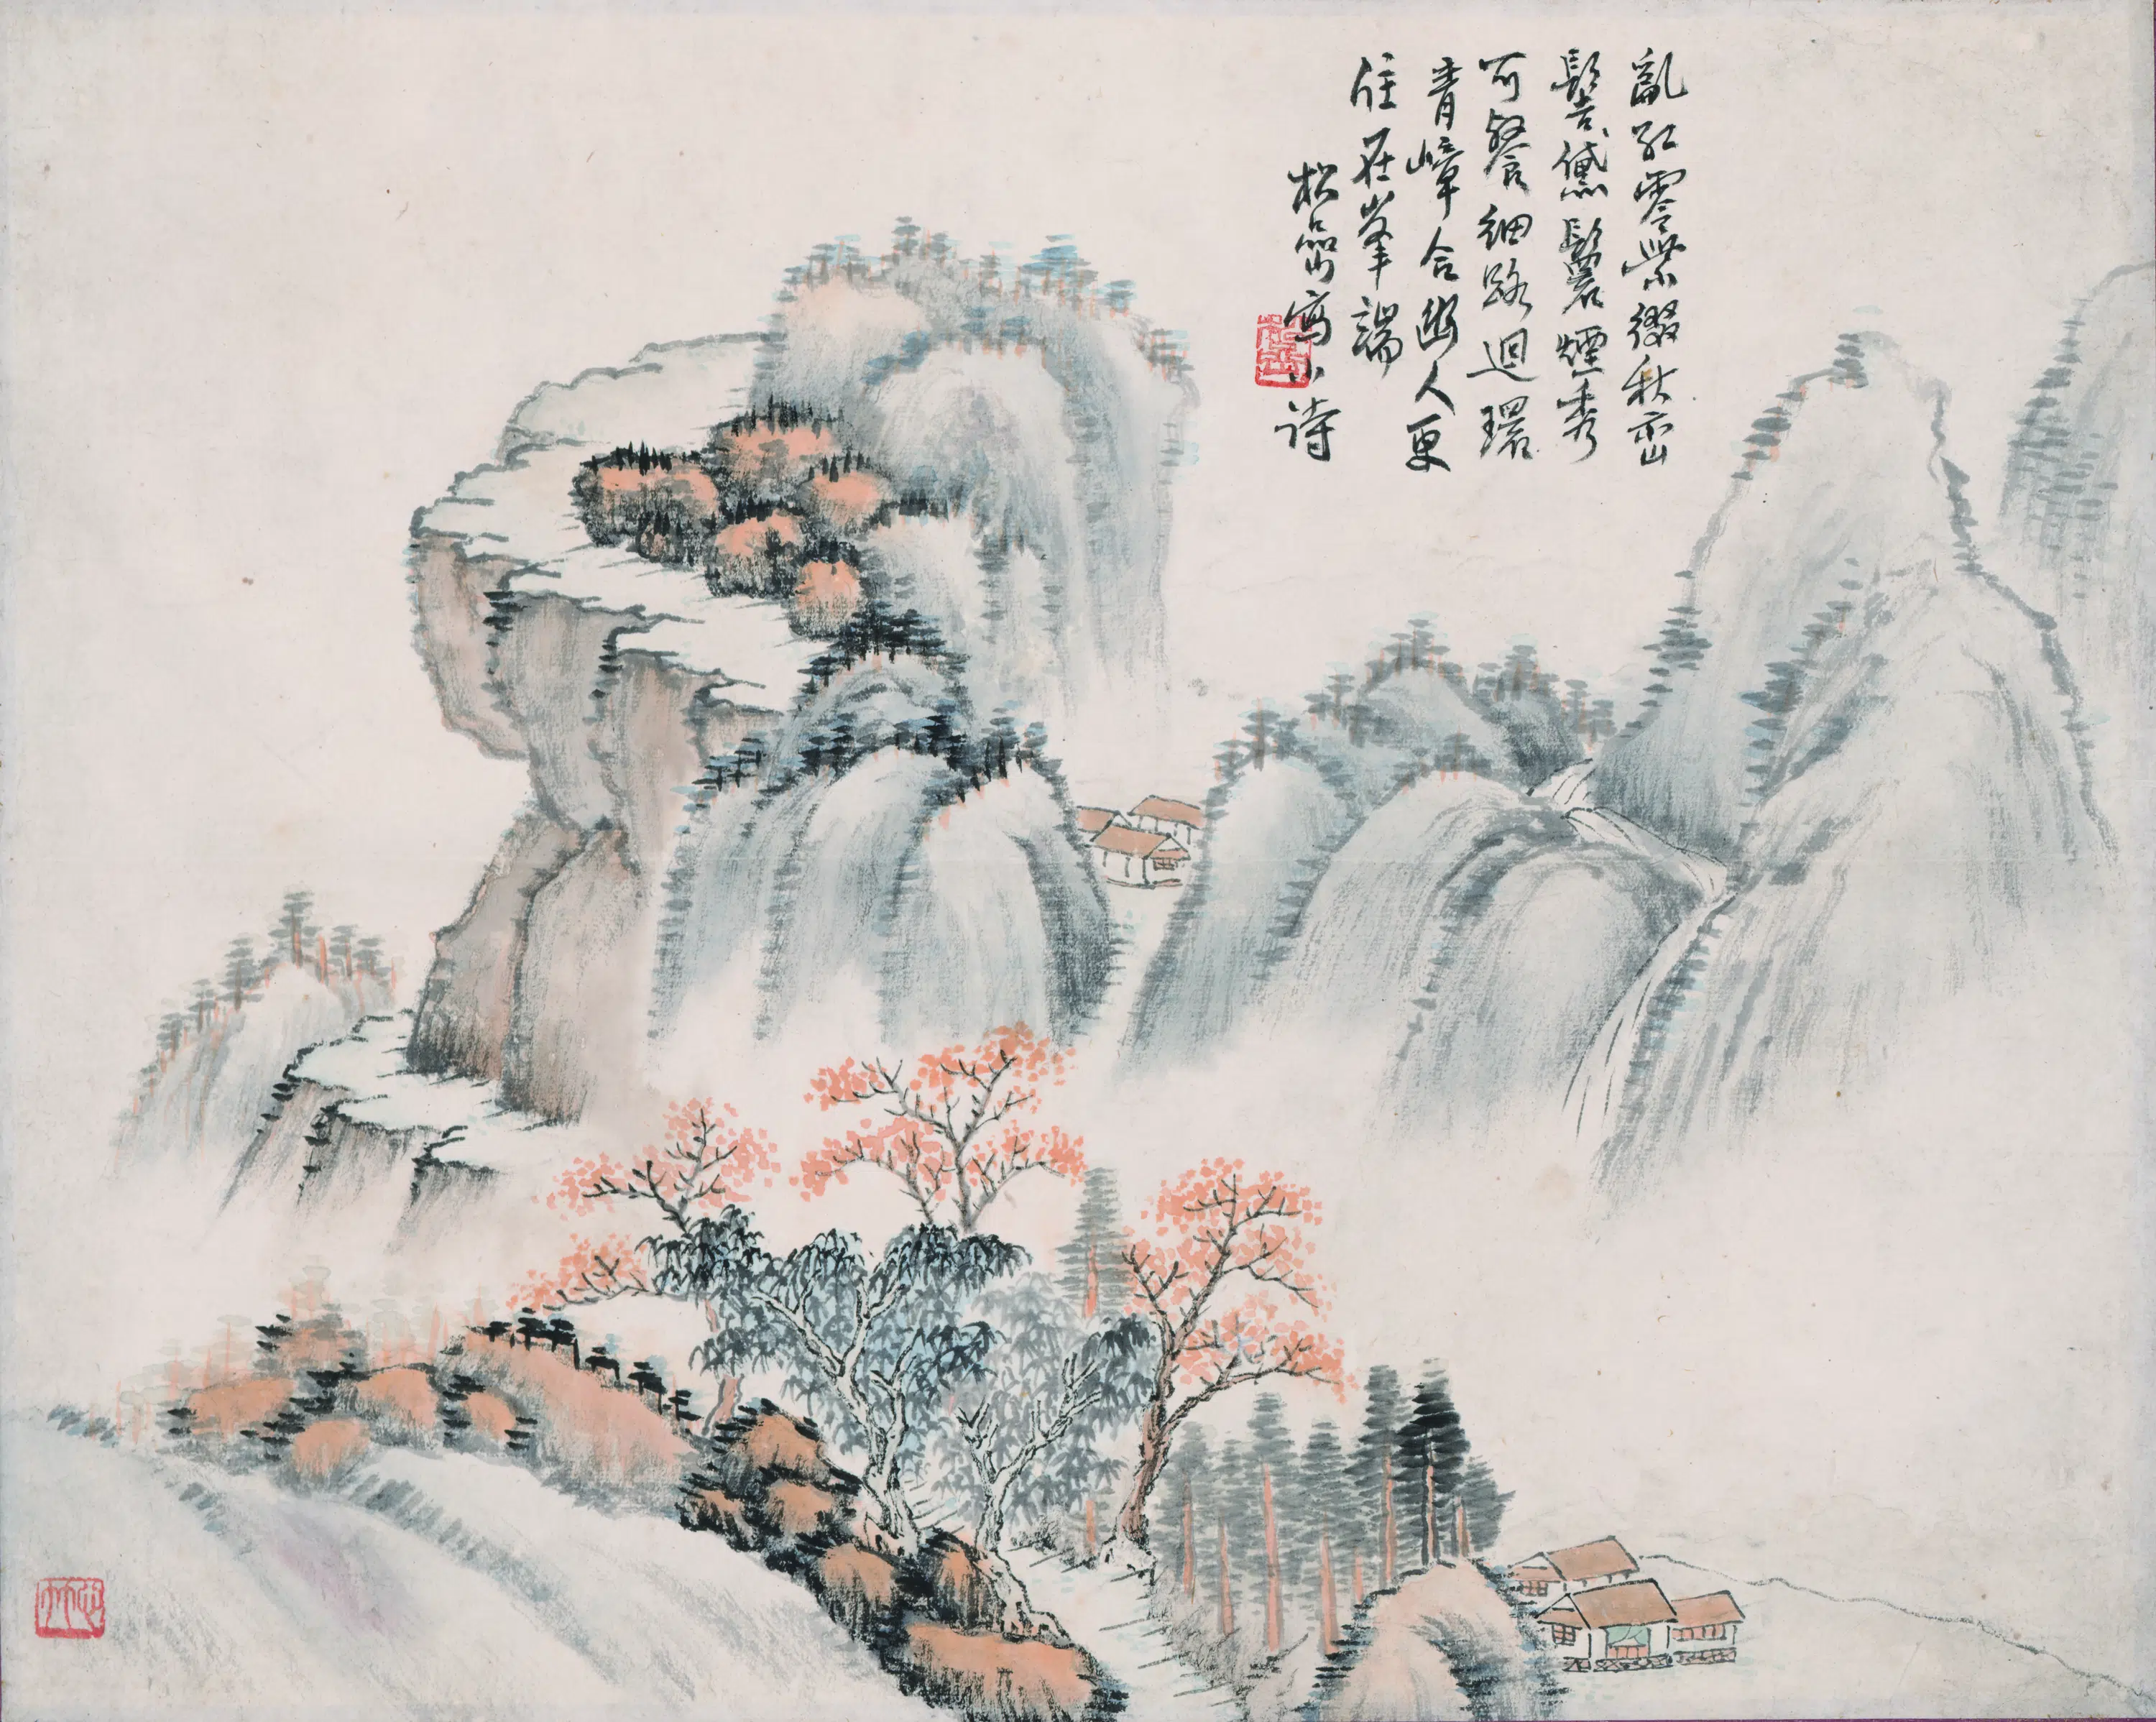 亂紅零紫綴秋巒
髻黛鬟煙秀
可餐細路迴環
青嶂合幽人更
住在峯端
松窗寫小詩